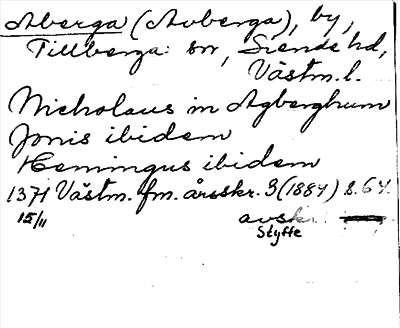 Åberga (Avberga), by,
Tillberga sn, Siende hd,
Västm. l.
Nicholaus in Agberghum
Jonis ibidem
Hemingus ibidem
1371 Västm. fm. årsskr. 3 (1884) s. 64.
15/11 avskr.
Styffe